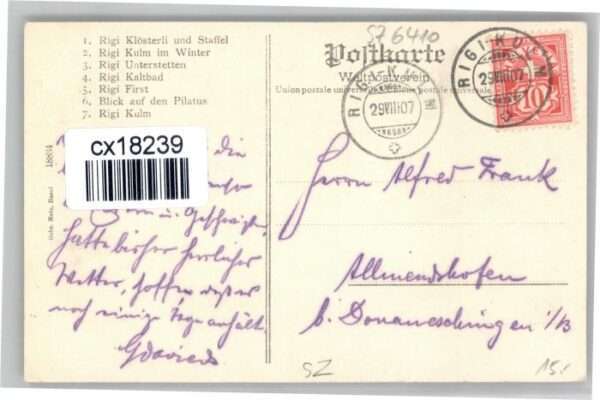 1. Rigi Klösterli und Staffel
2. Rigi Kulm im Winter
3. Rigi Unterstetten
4. Rigi Kaltbad
5. Rigi First
6. Blick auf den Pilatus
7. Rigi Kulm
18664
Gebr. Metz, Basel
cx18239
SZ 6410
Postkarte
Weltpostverein
Union postale universelle postale universale
RIGI-KULM
29.VIII.07
RIGI-KULM
29.VIII.07
10
die
u. Geschwister
hatte bisher herrliches
Wetter, hoffen daß es
noch einige Tage anhält.
Herrn Alfred Frank
Allmendshofen
b. Donaueschingen i/B
SZ
15.-